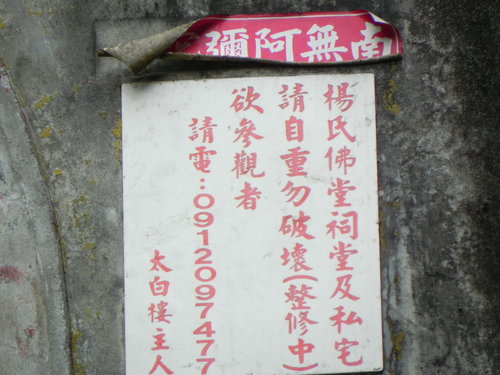 南無阿彌
楊氏佛堂祠堂及私宅
請自重勿破壞(整修中)
欲參觀者
請電:0912097477
太白樓主人